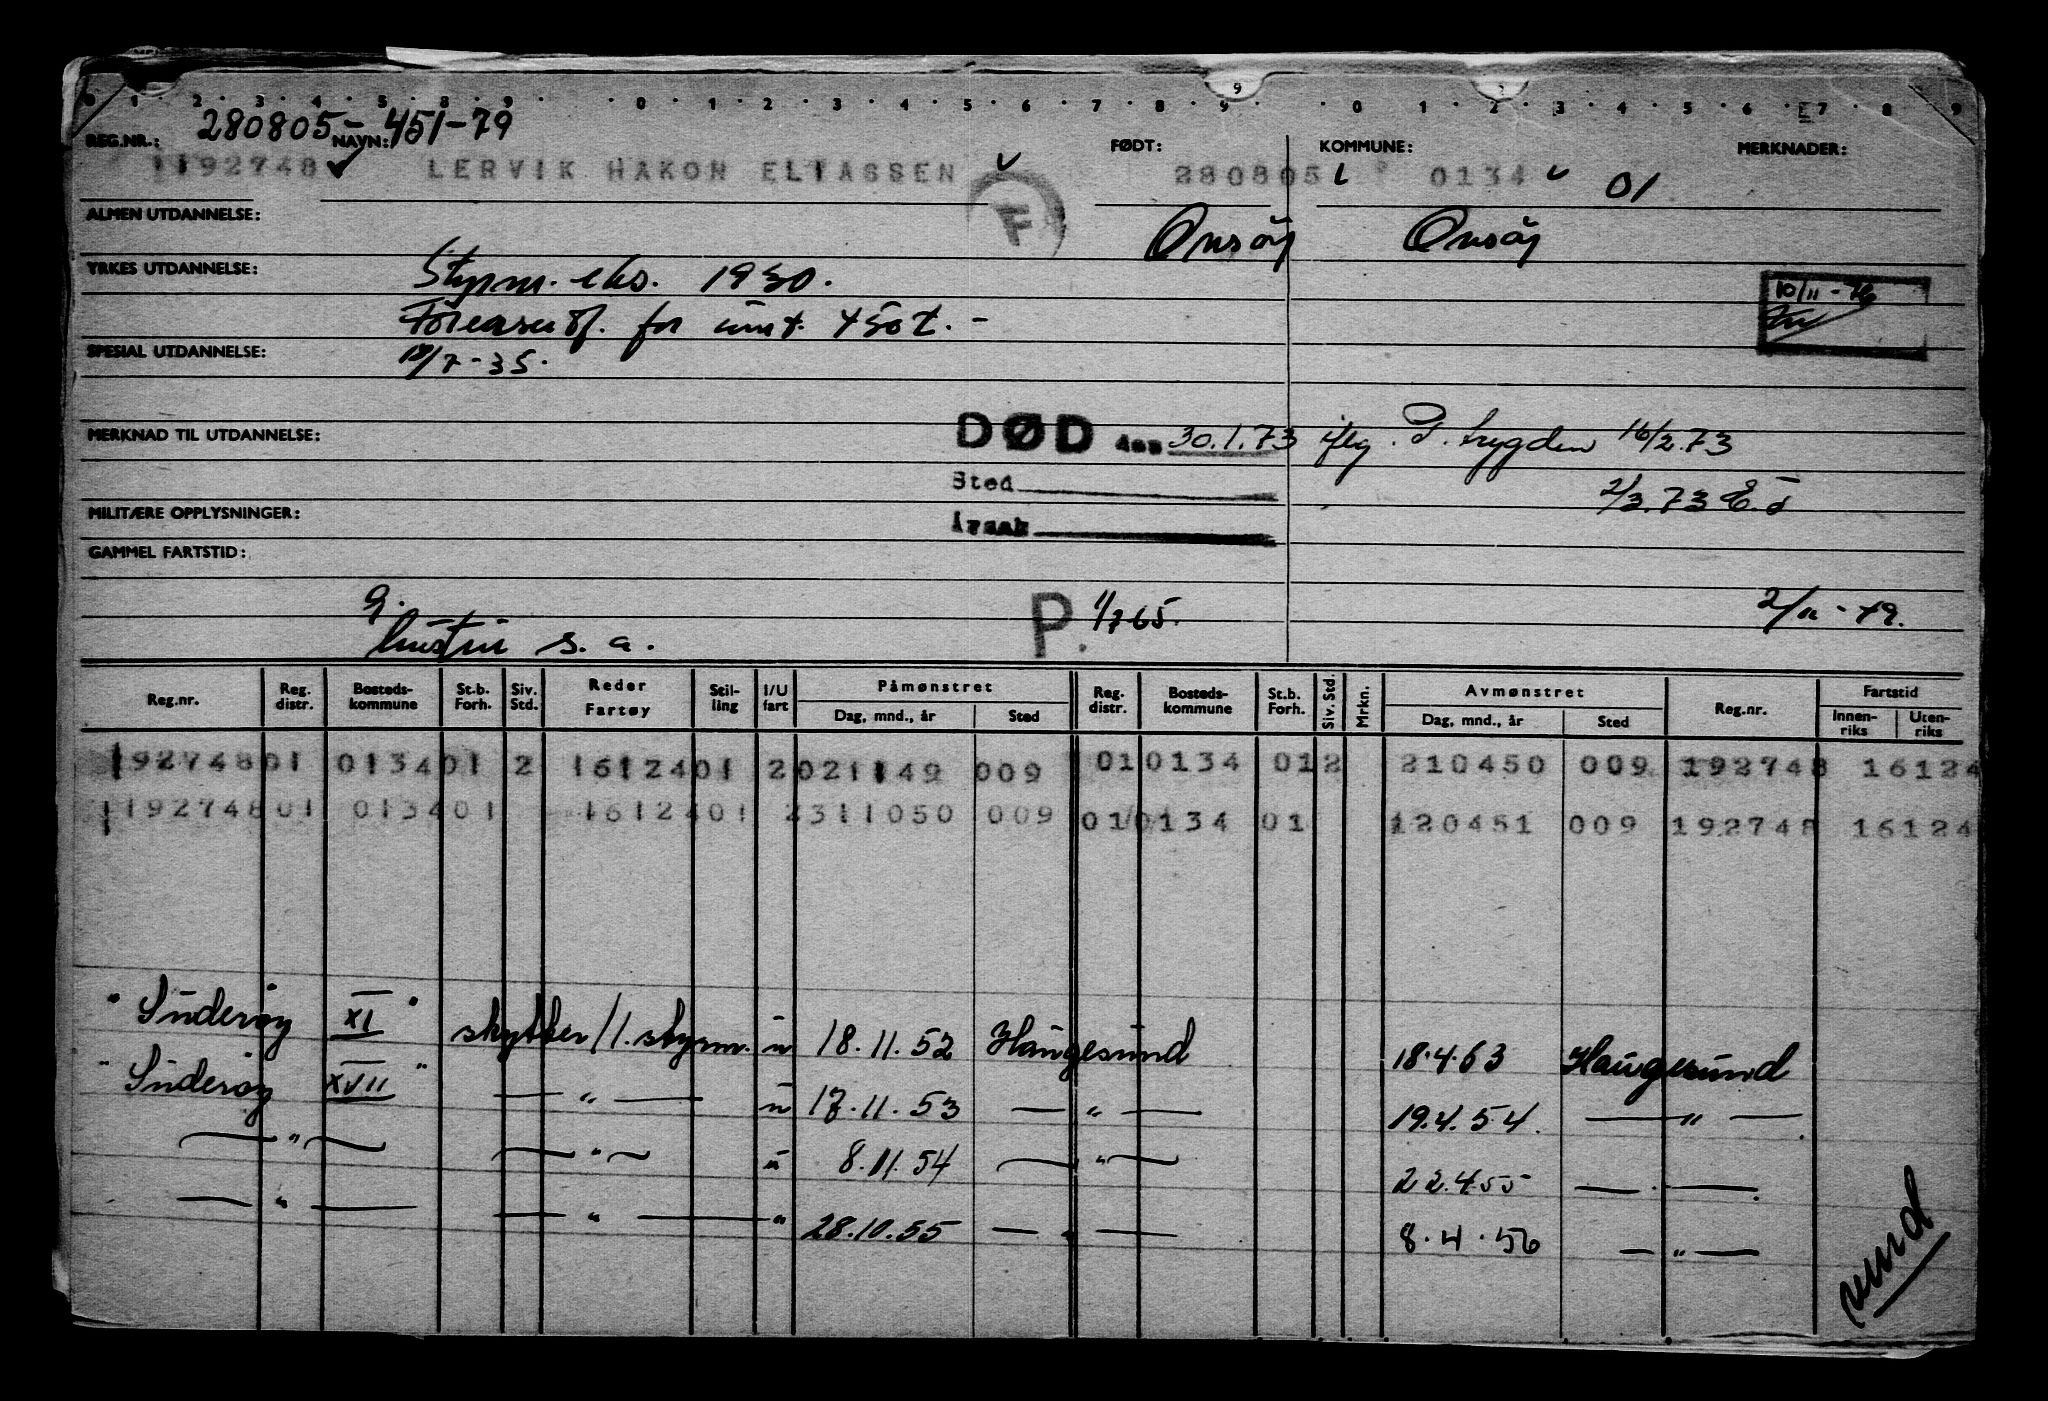 0 1 2 3 4 5 8 9 0 1 2 3 4 5 6 7 8 9 0 1 2 3 4 5 6 7 8 9
REG.NR.: 280805-451-79 NAVN: FØDT: KOMMUNE: MERKNADER:
192748 LERVIK HAKON ELIASSEN 280805 0134 01
F
ALMEN UTDANNELSE: Onsöy Onsöy
YRKES UTDANNELSE: Styrm. eks. 1930.
for
SPESIAL UTDANNELSE: 7-35.
DØD den 30.1.73 iflg. P. trygden 16/2.73
MERKNAD TIL UTDANNELSE:
Sted 2/3.73 E.Ø
MILITÆRE OPPLYSNINGER: Årsak
GAMMEL FARTSTID:
g. P. 1/7 65. 2/11-49.
s. a.
Reg.nr. Reg. distr. Bosteds-kommune St.b. Forh. Siv. Std. Reder Fartøy Stil-ling I/U fart Påmønstret Dag, mnd., år Sted Reg. distr. Bosteds-kommune St.b. Forh. Siv. Std. Mrkn. Avmønstret Dag, mnd., år Sted Reg.nr. Fartstid Innen-riks Uten-riks
192748 01 0134 01 2 16124 01 2 021149 009 01 0134 01 2 210450 009 192748 16124
192748 01 0134 01 16124 01 2 311050 009 01 0134 01 120451 009 192748 16124
"Suderøy XI" skytter/1. styrm. u 18.11.52 Haugesund 18.4.53 Haugesund
"Suderøy XVII" — " — u 17.11.53 — " — 19.4.54. — " —
— " — — " — u 8.11.54 — " — 22.4.55 — " —
— " — — " — " 28.10.55 — " — 8.4.56 — " —
vend